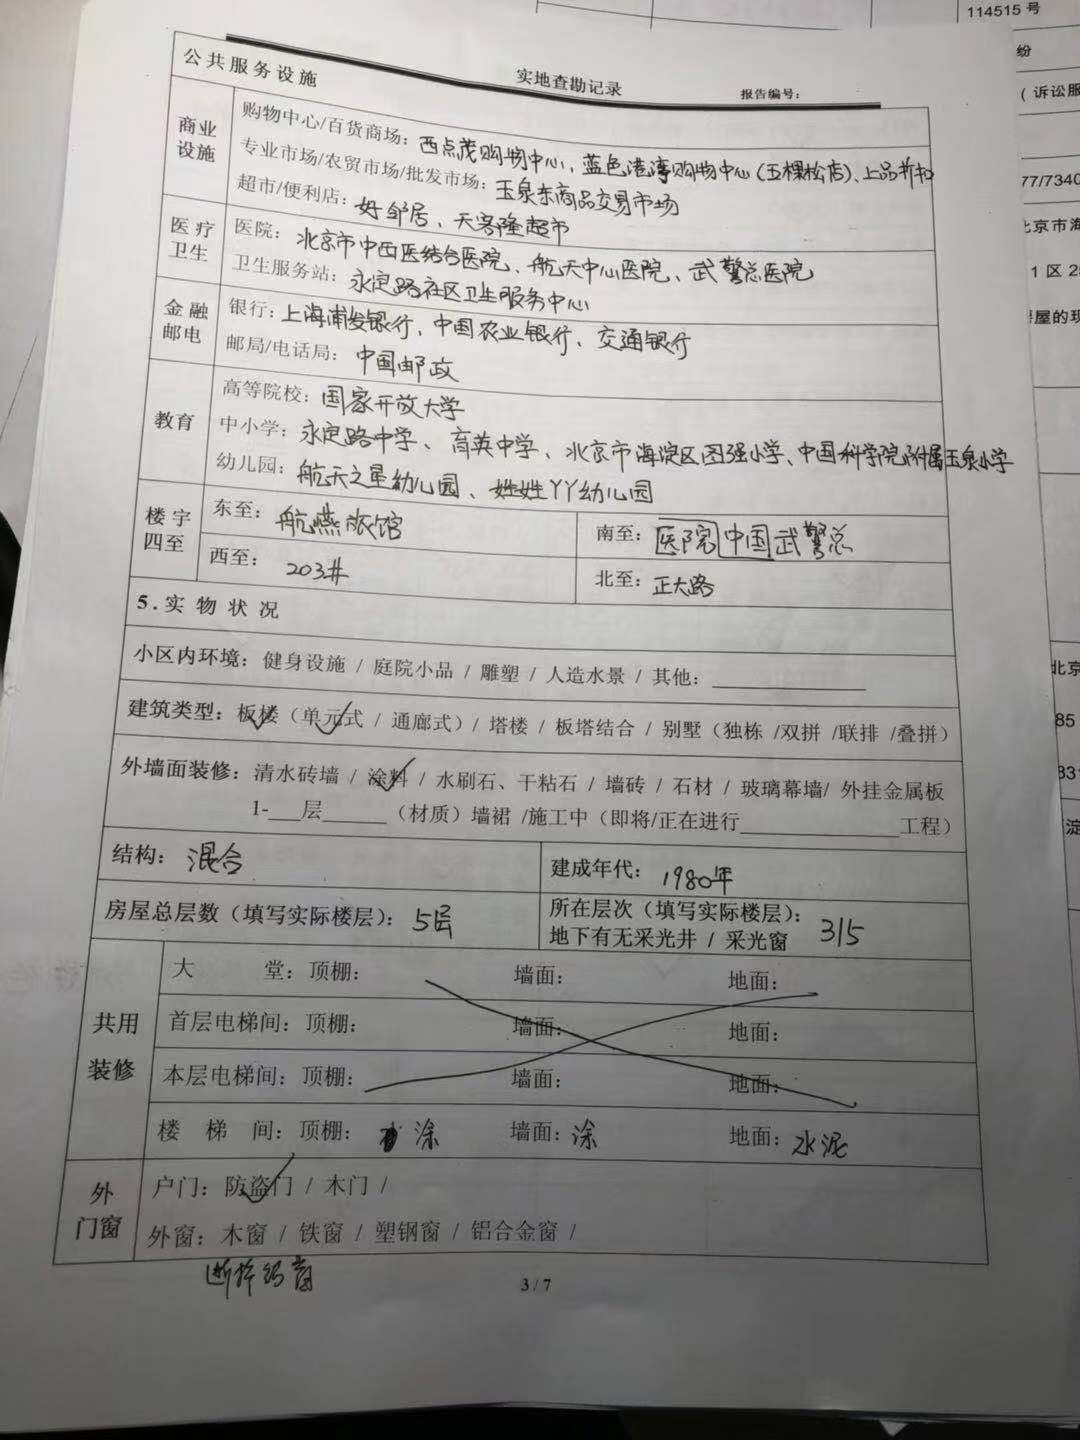 114515 号
纷
(诉讼服
77/7340
北京市海
1 区 2
屋的现
北京
85
831
淀
公共服务设施
实地查勘记录
报告编号：
商业设施
购物中心/百货商场：西点茂购物中心、蓝色港湾购物中心(五棵松店)、上品折扣
专业市场/农贸市场/批发市场：玉泉东商品交易市场
超市/便利店：好邻居、天客隆超市
医疗卫生
医院：北京市中西医结合医院、航天中心医院、武警总医院
卫生服务站：永定路社区卫生服务中心
金融邮电
银行：上海浦发银行、中国农业银行、交通银行
邮局/电话局：中国邮政
教育
高等院校：国家开放大学
中小学：永定路中学、育英中学、北京市海淀区图强小学、中国科学院附属玉泉小学
幼儿园：航天之星幼儿园、姓姓丫丫幼儿园
楼宇四至
东至：航燕旅馆
南至：医院中国武警总
西至：203#
北至：正大路
5.实物状况
小区内环境：健身设施 / 庭院小品 / 雕塑 / 人造水景 / 其他：
建筑类型：板楼（单元式 / 通廊式）/ 塔楼 / 板塔结合 / 别墅（独栋 /双拼 /联排 /叠拼）
外墙面装修：清水砖墙 / 涂料 / 水刷石、干粘石 / 墙砖 / 石材 / 玻璃幕墙/ 外挂金属板
1-___层______（材质）墙裙 /施工中（即将/正在进行______________工程）
结构：混合
建成年代：1980年
房屋总层数（填写实际楼层）：5层
所在层次（填写实际楼层）：
地下有无采光井 / 采光窗 3/5
共用装修
大 堂：顶棚： 墙面： 地面：
首层电梯间：顶棚： 墙面： 地面：
本层电梯间：顶棚： 墙面： 地面：
楼 梯 间：顶棚：涂 墙面：涂 地面：水泥
外门窗
户门：防盗门 / 木门 /
外窗：木窗 / 铁窗 / 塑钢窗 / 铝合金窗 /
断桥铝窗
3 / 7